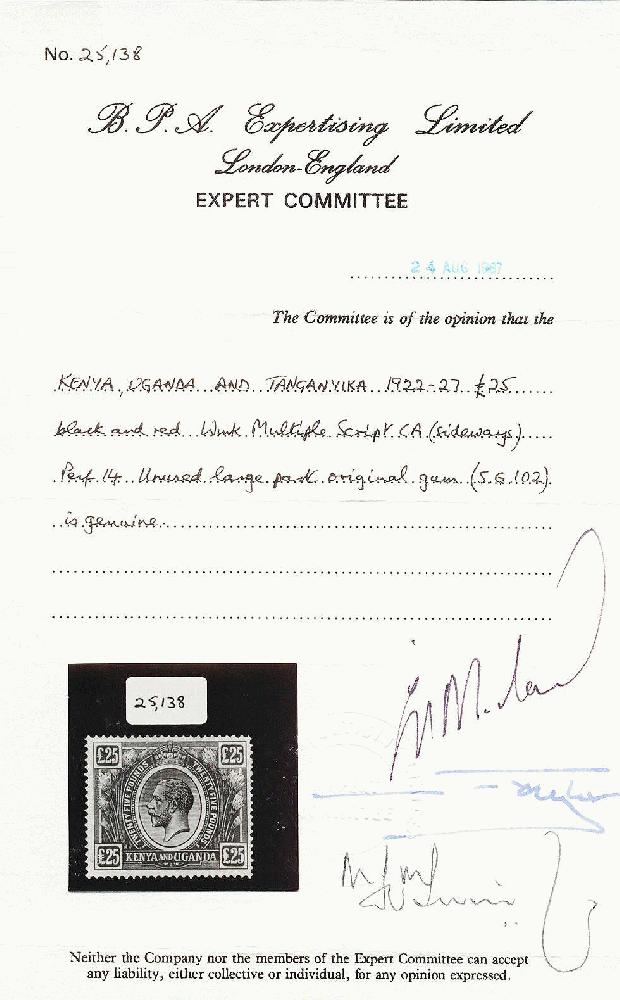 No. 25,138
B. P. A. Expertising Limited
London-England
EXPERT COMMITTEE
24 AUG 1987
The Committee is of the opinion that the
KENYA, UGANDA AND TANGANYIKA 1922-27 £25
black and red Wmk Multiple Script CA (sideways)
Perf 14 Unused large part original gum (S.G.102)
is genuine
25,138
£25 £25
TWENTY FIVE POUNDS TWENTY FIVE POUNDS
£25 KENYA AND UGANDA £25
Neither the Company nor the members of the Expert Committee can accept
any liability, either collective or individual, for any opinion expressed.